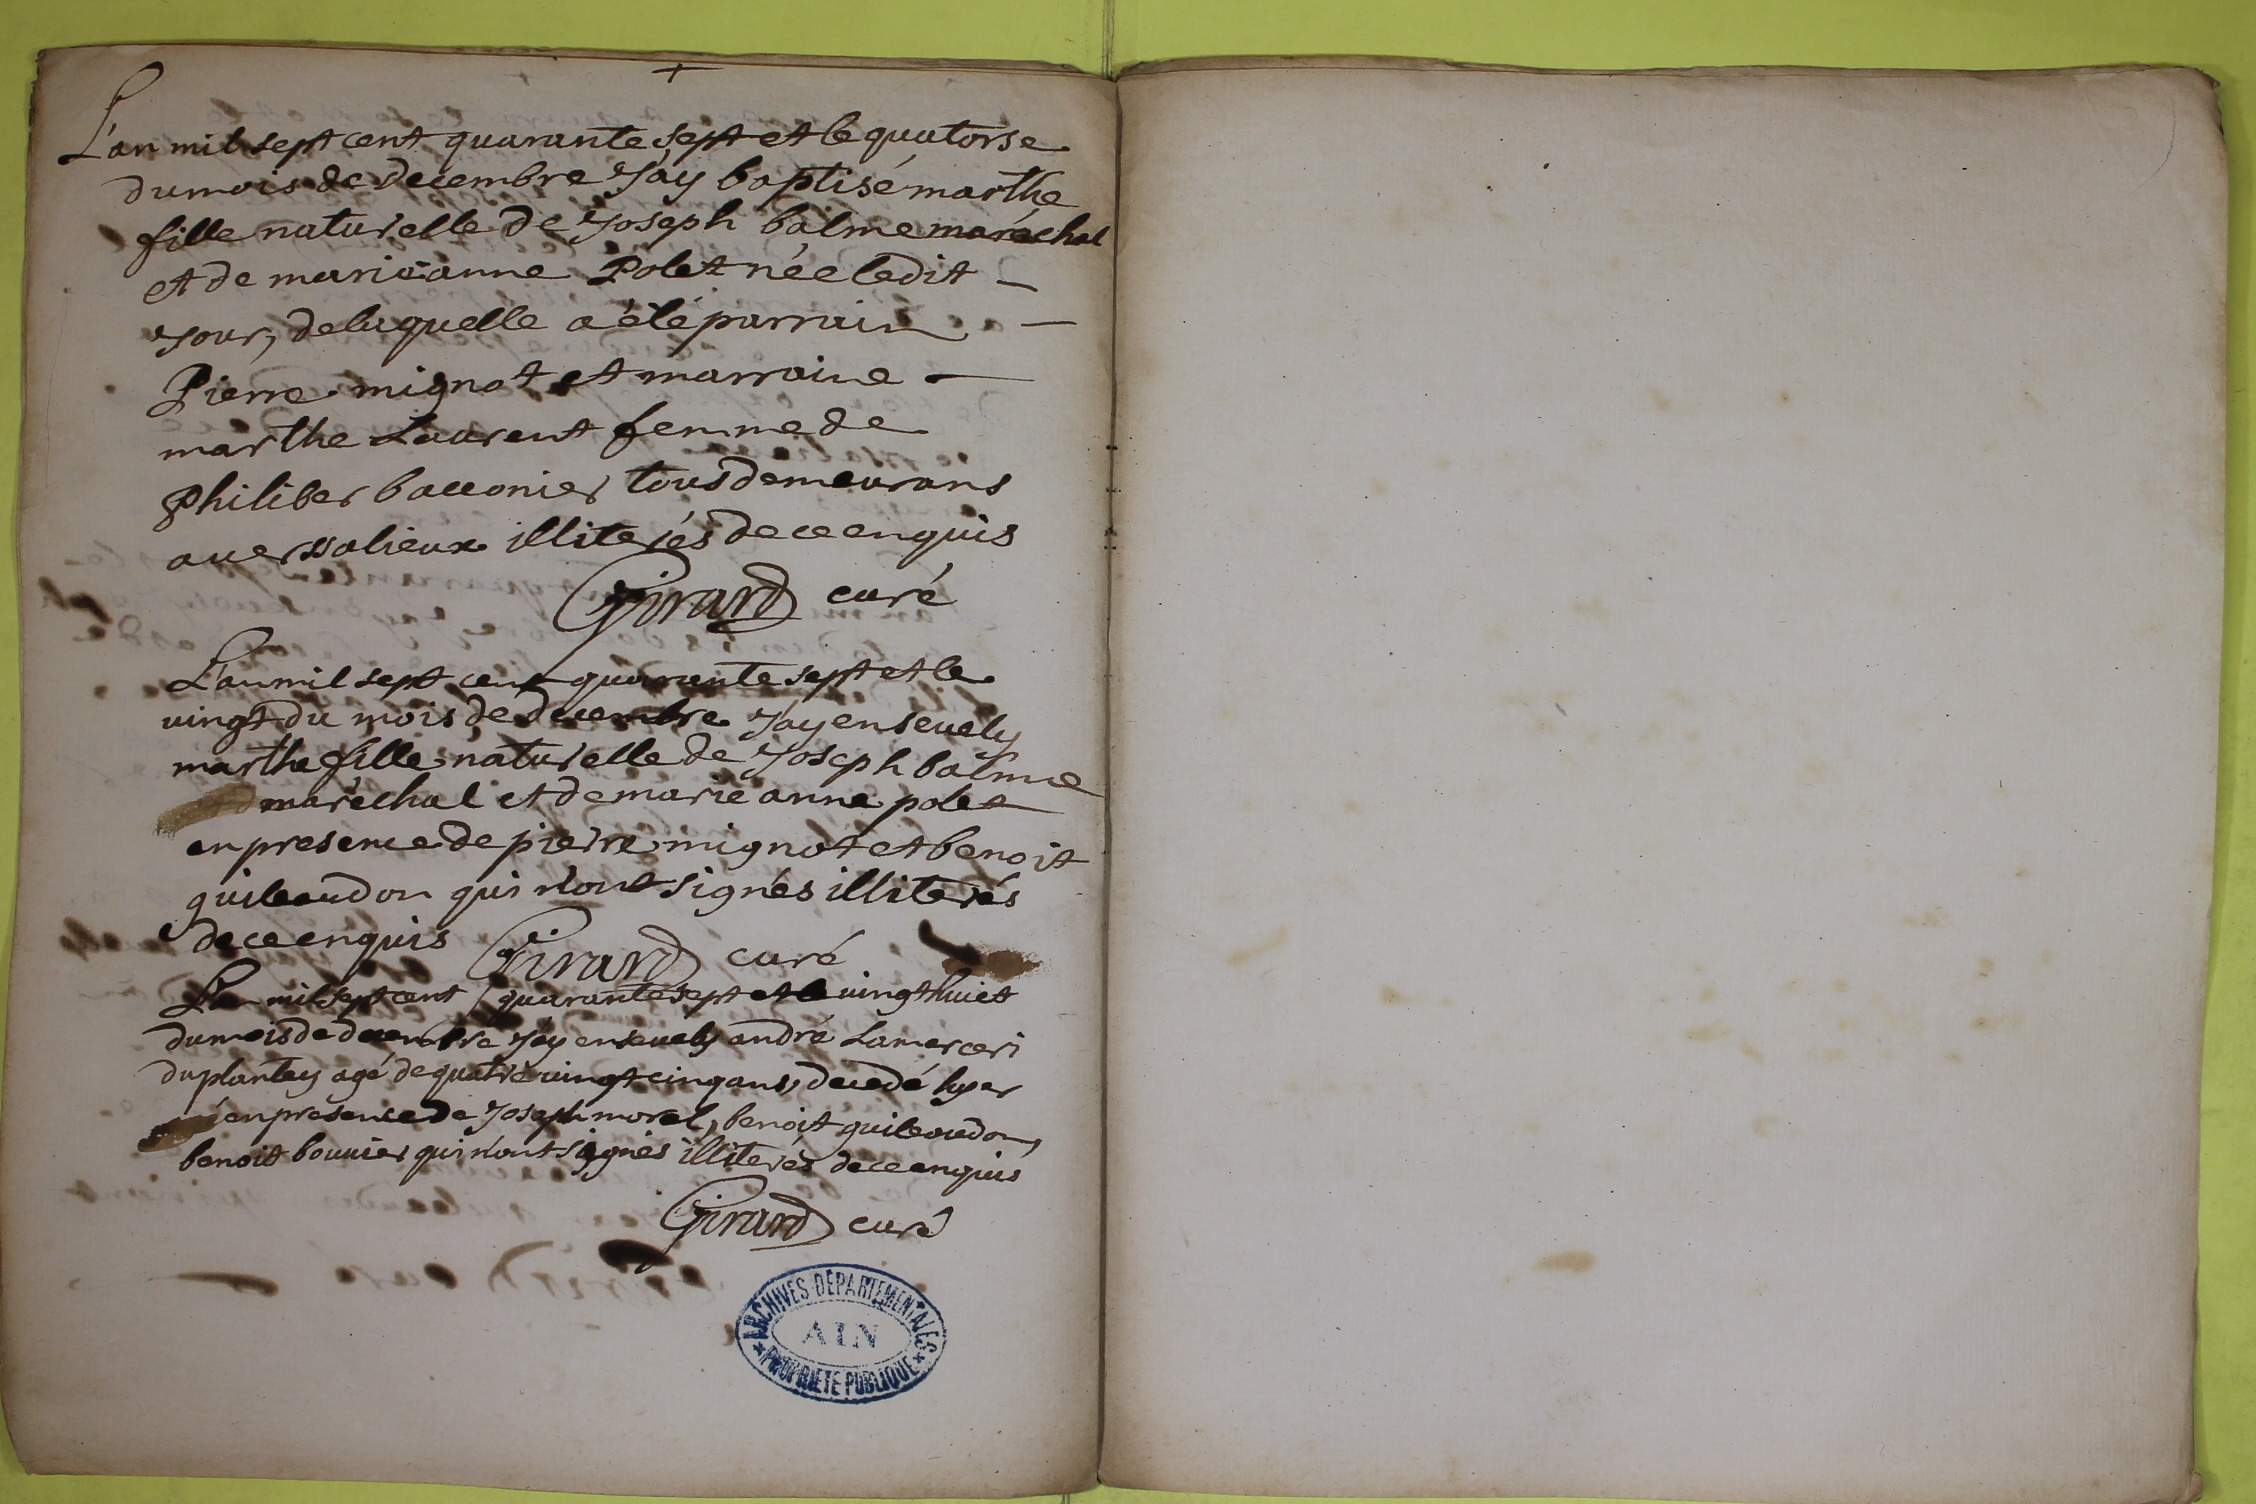 L'an mil sept cent quarante sept et le quatorse
du mois de decembre J'ay baptisé marthe
fille naturelle de Joseph balme maréchal
et de marie anne Polet née ledit
Jour, de laquelle a été parrain
Pierre mignot et marraine
marthe Laurent femme de
Philiber bacconier tous demeurans
a uerssalieux illiterés de ce enquis
Girard curé
L'an mil sept cent quarante sept et le
vingt du mois de decembre J'ay enseuely
marthe fille naturelle de Joseph balme
maréchal et de marie anne polet
en presence de pierre mignot et benoit
guileaudon qui n'ont signés illiterés
de ce enquis Girard curé
L'an mil sept cent quarante sept et le uingt huict
du mois de decembre J'ay enseuely andré Lamerceri
du plantey agé de quatre uingt cinq ans, decedé hyer
en presence de Joseph morel, benoit guileaudon,
benoit bouuier qui n'ont signés illiterés de ce enquis
Girard curé
ARCHIVES DÉPARTEMENTALES
AIN
PROPRIÉTÉ PUBLIQUE